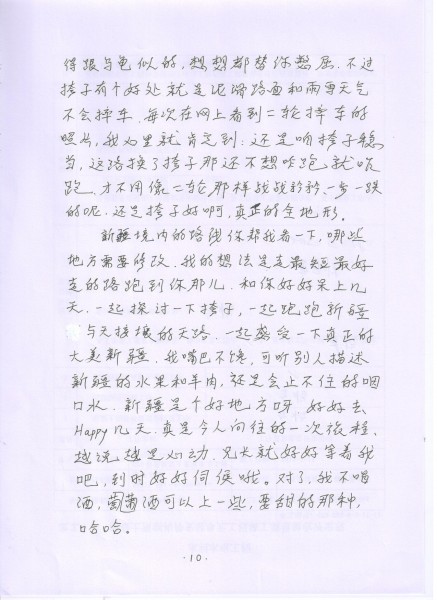 得跟乌龟似的，想想都替你憋屈。不过
挎子有个好处就是泥泞路面和雨雪天气
不会摔车。每次在网上看到二轮摔车的
照片，我心里就肯定到：还是咱挎子稳
当，这路换了挎子那还不想咋跑就咋
跑，才不用像二轮那样战战矜矜一步一跌
的呢。还是挎子好啊，真正的全地形。
新疆境内的路线你帮我看一下，哪些
地方需要修改。我的想法是走最短最好
走的路跑到你那儿，和你好好呆上几
天。一起探讨一下挎子，一起跑跑新疆
与天接壤的天路。一起感受一下真正的
大美新疆。我嘴巴不馋，可听别人描述
新疆的水果和羊肉，还是会止不住的咽
口水。新疆是个好地方呀，好好去
Happy几天。真是令人向往的一次旅程，
越说越是心动。兄长就好好等着我
吧，到时好好伺候哦。对了，我不喝
酒，葡萄酒可以上一些，要甜的那种，
哈哈。
·10·